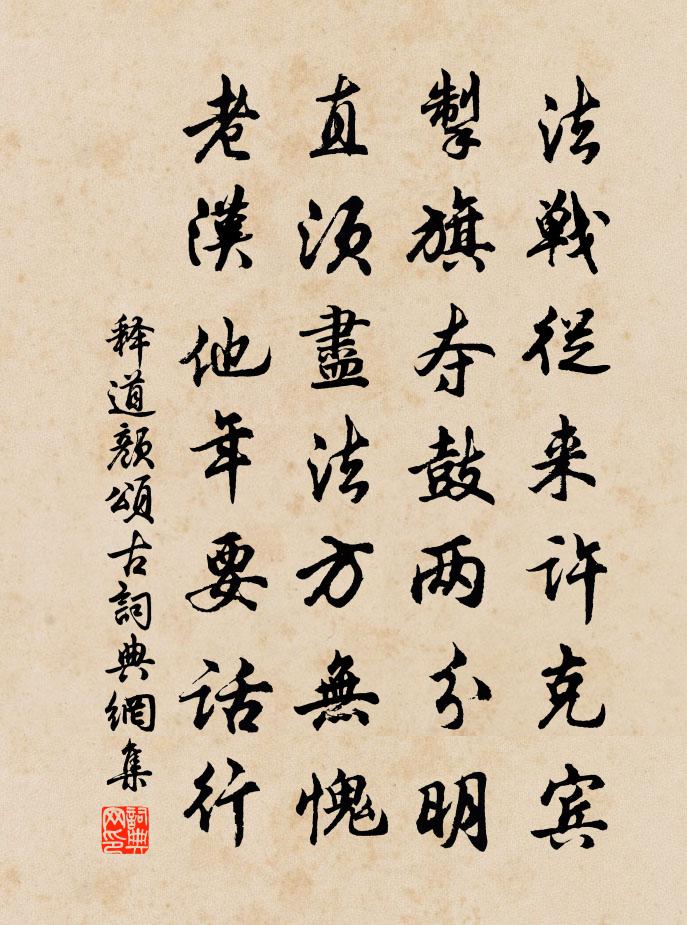 法戦従来许克宾
掣旗夺鼓两分明
直须盡法方無愧
老漢他年要话行
释道颜頌古詞典網集
詞典网印